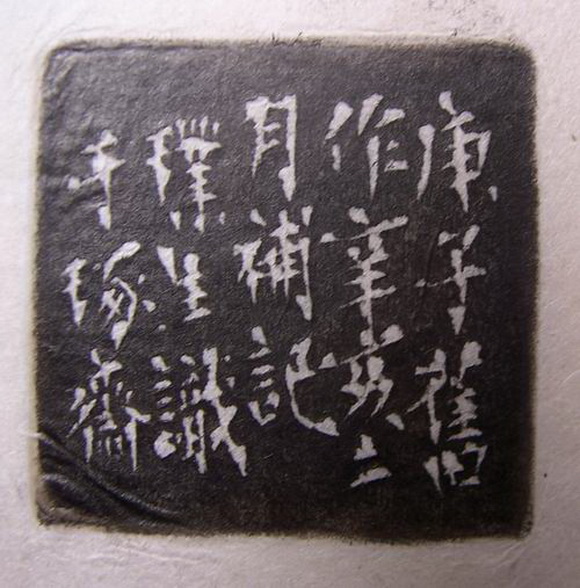 庚子舊
作辛亥二
月補記
璞生識
于琢齋